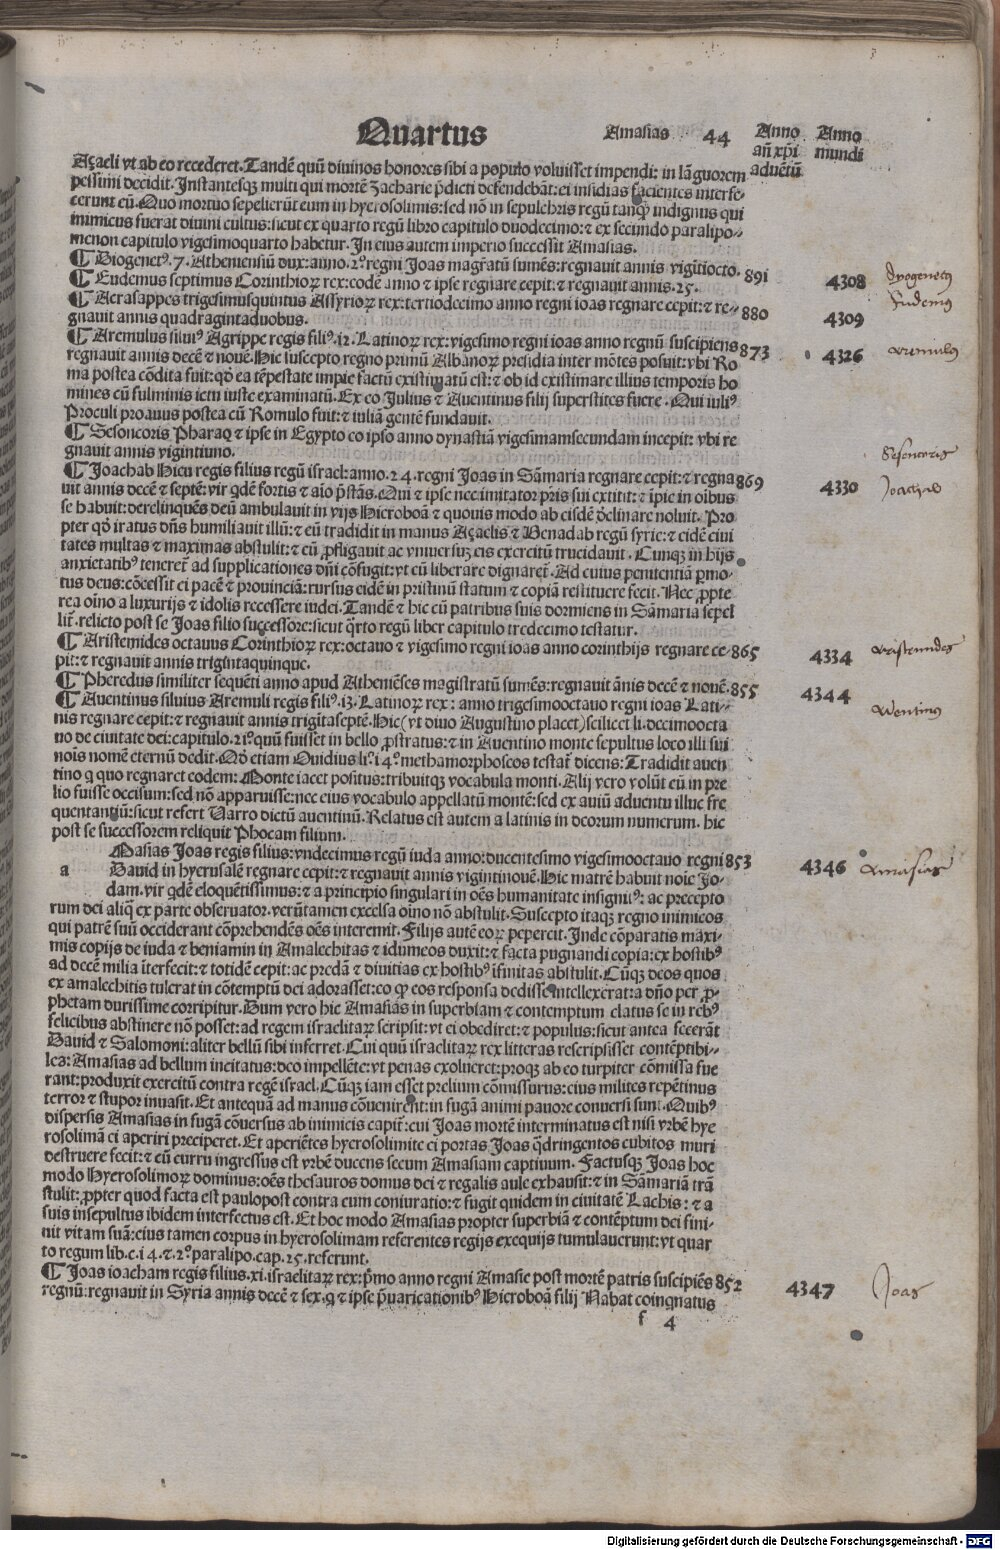 Quartus Amasias 44 Anno Anno
añ xp̄i mundi
aduētū
Açaeli vt ab eo recederet. Tandē quū diuinos honores sibi a populo voluisset impendi: in lāguorem
pessimū decidit. Instantesqȝ multi qui mortē Zacharie p̄dicti defendebāt: ei insidias facientes interfe-
cerunt eū. Quo mortuo sepelierūt eum in hyerosolimis: sed nō in sepulchris regū tanqȝ indignus qui
inimicus fuerat diuini cultus: sicut ex quarto regū libro capitulo duodecimo: ⁊ ex secundo paralipo-
menon capitulo vigesimoquarto habetur. In eius autem imperio successit Amasias.
¶ Diogenetꝰ .7. Atheniensiū dux: anno .2º. regni Joas magr̄atū sumēs: regnauit annis vigītiocto. 891 4308
¶ Eudemus septimus Corinthioꝝ rex: eodē anno ⁊ ipse regnare cepit: ⁊ regnauit annis .25. Eudemus
¶ Acrasappes trigesimusquintus Assyrioꝝ rex: tertiodecimo anno regni ioas regnare cepit: ⁊ re- 880
gnauit annis quadragintaduobus. 4309
¶ Aremulus siluiꝰ Agrippe regis filiꝰ .12. Latinoꝝ rex: vigesimo regni ioas anno regnū suscipiens 873 4326
regnauit annis decē ⁊ nouē. Hic suscepto regno primū Albanoꝝ presidia inter mōtes posuit: vbi Ro
ma postea cōdita fuit: qđ ea tēpestate impie factū existimatū est: ⁊ ob id existimare illius temporis ho
mines eū fulminis ictu iuste examinatū. Ex eo Julius ⁊ Auentinus filij superstites fuere. Qui iuliꝰ
Proculi proauus postea cū Romulo fuit: ⁊ iuliā gentē fundauit.
¶ Sesoncoris Pharao ⁊ ipse in Egypto eo ipso anno dynastiā vigesimamsecundam incepit: vbi re
gnauit annis vigintiuno. Sesoncoris
¶ Joachab Hieu regis filius regū israel: anno .24. regni Joas in Sāmaria regnare cepit: ⁊ regna 869 4330 Joachab
uit annis decē ⁊ septē: vir qđē fortis ⁊ aīo p̄stās. Qui ⁊ ipse nec imitator p̄ris sui extitit: ⁊ ipie in oībus
se habuit: derelinquēs deū ambulauit in vijs Hieroboā ⁊ quouis modo ab eisdē declinare noluit. Pro
pter qđ iratus dn̄s humiliauit illū: ⁊ eū tradidit in manus Açaelis ⁊ Benadab regū syrie: ⁊ eidē ciui
tates multas ⁊ maximas abstulit: ⁊ eū ꝓfligauit ac vniuersuȝ eis exercitū trucidauit. Cunqȝ in hijs
anxietatibꝰ teneret̄ ad supplicationes dn̄i cōfugit: vt eū liberare dignaret̄. Ad cuius penitentiā p̄mo-
tus deus: cōcessit ei pacē ⁊ prouinciā: rursus eidē in pristinū statum ⁊ copiā restituere fecit. Nec ꝓpte
rea oīno a luxurijs ⁊ idolis recessere iudei. Tandē ⁊ hic cū patribus suis dormiens in Sāmaria sepel
lit̄. relicto post se Joas filio successore: sicut q̄rto regū liber capitulo tredecimo testatur.
¶ Aristemides octauus Corinthioꝝ rex: octauo ⁊ vigesimo regni ioas anno corinthijs regnare ce- 865 4334
pit: ⁊ regnauit annis trigintaquinque.
¶ Pheredus similiter sequēti anno apud Atheniēses magistratū sumēs: regnauit ānis decē ⁊ nouē. 855 4344
¶ Auentinus siluius Aremuli regis filiꝰ .13. Latinoꝝ rex: anno trigesimooctauo regni ioas Lati-
nis regnare cepit: ⁊ regnauit annis trigītaseptē. Hic (vt diuo Augustino placet) scilicet li. decimoocta
uo de ciuitate dei: capitulo .21º. quū fuisset in bello ꝓstratus: ⁊ in Auentino monte sepultus loco illi sui
noīs nomē eternū dedit. Qđ etiam Ouidius liº. 14º. methamorphoseos testat̄ dicens: Tradidit auen
tino q quo regnaret eodem: Monte iacet positus: tribuitqȝ vocabula monti. Alij vero volūt eū in pre
lio fuisse occisum: sed nō apparuisse: nec eius vocabulo appellatū montē: sed ex auiū aduentu illuc fre
quentantiū: sicut refert Varro dictū auentinū. Relatus est autem a latinis in deorum numerum. hic
post se successorem reliquit Phocam filium.
Masias Joas regis filius: vndecimus regū iuda anno: ducentesimo vigesimooctauo regni 853 4346 Amasias
a Dauid in hyerusalē regnare cepit: ⁊ regnauit annis vigintinouē. Hic matrē habuit noīe Jo-
dam. vir qđē eloquētissimus: ⁊ a principio singulari in oēs humanitate insigniꝰ: ac precepto
rum dei aliq̄ ex parte obseruator. verūtamen excelsa oīno nō abstulit. Suscepto itaqȝ regno inimicos
qui patrē suū occiderant cōprehendēs oēs interemit. Filijs autē eoꝝ pepercit. Inde cōparatis maxi-
mis copijs de iuda ⁊ beniamin in Amalechitas ⁊ idumeos duxit: ⁊ facta pugnandi copia: ex hostibꝰ
ad decē milia īterfecit: ⁊ totidē cepit: ac predā ⁊ diuitias ex hostibꝰ īfinitas abstulit. Cūqȝ deos quos
ex amalechitis tulerat in cōtemptū dei adorasset: eo ꝙ eos responsa dedisse intellexerat: a dn̄o per ꝓ-
phetam durissime corripitur. Dum vero hic Amasias in superbiam ⁊ contemptum elatus se in rebꝰ
felicibus abstinere nō posset: ad regem israelitaꝝ scripsit: vt ei obediret: ⁊ populus: sicut antea fecerāt
Dauid ⁊ Salomoni: aliter bellū sibi inferret. Cui quū israelitaꝝ rex litteras rescripsisset contēptibi-
les: Amasias ad bellum incitatus: deo impellēte: vt penas exolueret: proqȝ ab eo turpiter cōmissa fue
rant: produxit exercitū contra regē israel. Cūqȝ iam esset prelium cōmissurus: eius milites repētinus
terror ⁊ stupor inuasit. Et antequā ad manus cōuenirent: in fugā animi pauore conuersi sunt. Quibꝰ
dispersis Amasias in fugā cōuersus ab inimicis capit̄: cui Joas mortē interminatus est nisi vrbē hye
rosolimā ei aperiri preciperet. Et aperiētes hyerosolimite ei portas Joas q̄dringentos cubitos muri
destruere fecit: ⁊ cū curru ingressus est vrbē ducens secum Amasiam captiuum. Factusqȝ Joas hoc
modo Hyerosolimoꝝ dominus: oēs thesauros domus dei ⁊ regalis aule exhausit: ⁊ in Sāmariā trā
stulit: ꝓpter quod facta est paulopost contra eum coniuratio: ⁊ fugit quidem in ciuitatē Lachis: ⁊ a
suis insepultus ibidem interfectus est. Et hoc modo Amasias propter superbiā ⁊ contēptum dei fini-
uit vitam suā: eius tamen corpus in hyerosolimam referentes regijs exequijs tumulauerunt: vt quar
to regum lib. c. 14. ⁊ .2º. paralipo. cap. 25. referunt.
¶ Joas ioacham regis filius .xi. israelitaꝝ rex: p̄mo anno regni Amasie post mortē patris suscipiēs 852 4347 Joas
regnū: regnauit in Syria annis decē ⁊ sex. q ⁊ ipse p̄uaricationibꝰ Hieroboā filij Nabat coinqnatus
f 4
Digitalisierung gefördert durch die Deutsche Forschungsgemeinschaft - DFG